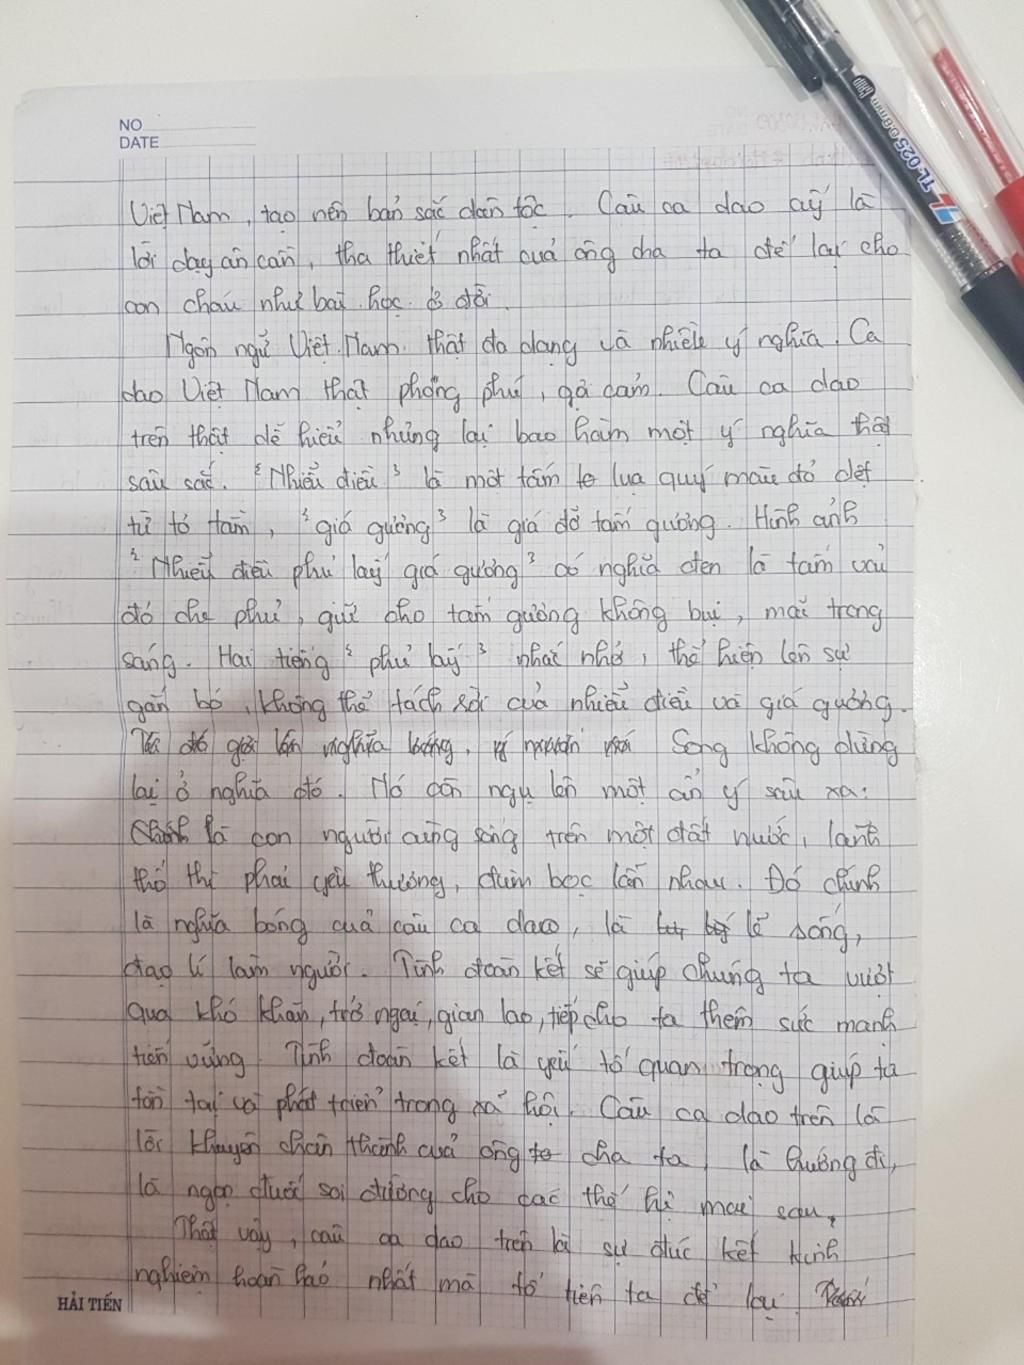 NO
DATE
Việt Nam, tạo nên bản sắc dân tộc. Câu ca dao ấy là
lời dạy ân cần, tha thiết nhất của ông cha ta để lại cho
con cháu như bài học ở đời.
Ngôn ngữ Việt Nam thật đa dạng và nhiều ý nghĩa. Ca
dao Việt Nam thật phong phú, gợi cảm. Câu ca dao
trên thật dễ hiểu nhưng lại bao hàm một ý nghĩa thật
sâu sắc. "Nhiễu điều" là một tấm lụa quý màu đỏ dệt
từ tơ tằm, "giá gương" là giá đỡ tấm gương. Hình ảnh
"Nhiễu điều phủ lấy giá gương" có nghĩa đen là tấm vải
đỏ che phủ, giữ cho tấm gương không bụi, mãi trong
sáng. Hai tiếng "phủ lấy" nhắc nhở, thể hiện lên sự
gắn bó, không thể tách rời của nhiễu điều và giá gương.
Song không dừng
lại ở nghĩa đó. Nó còn ngụ lên một ẩn ý sâu xa:
là con người cùng sống trên một đất nước, lãnh
thổ thì phải yêu thương, đùm bọc lẫn nhau. Đó chính
là nghĩa bóng của câu ca dao, là lẽ sống,
đạo lí làm người. Tình đoàn kết sẽ giúp chúng ta vượt
qua khó khăn, trở ngại, gian lao, tiếp cho ta thêm sức mạnh
tiến vững. Tình đoàn kết là yếu tố quan trọng giúp ta
tồn tại và phát triển trong xã hội. Câu ca dao trên là
lời khuyên chân thành của ông cha ta, là hướng đi,
là ngọn đuốc soi đường cho các thế hệ mai sau.
Thật vậy, câu ca dao trên là sự đúc kết kinh
nghiệm hoàn hảo nhất mà tổ tiên ta để lại.
HẢI TIẾN
TL-025 0.8mm Grip